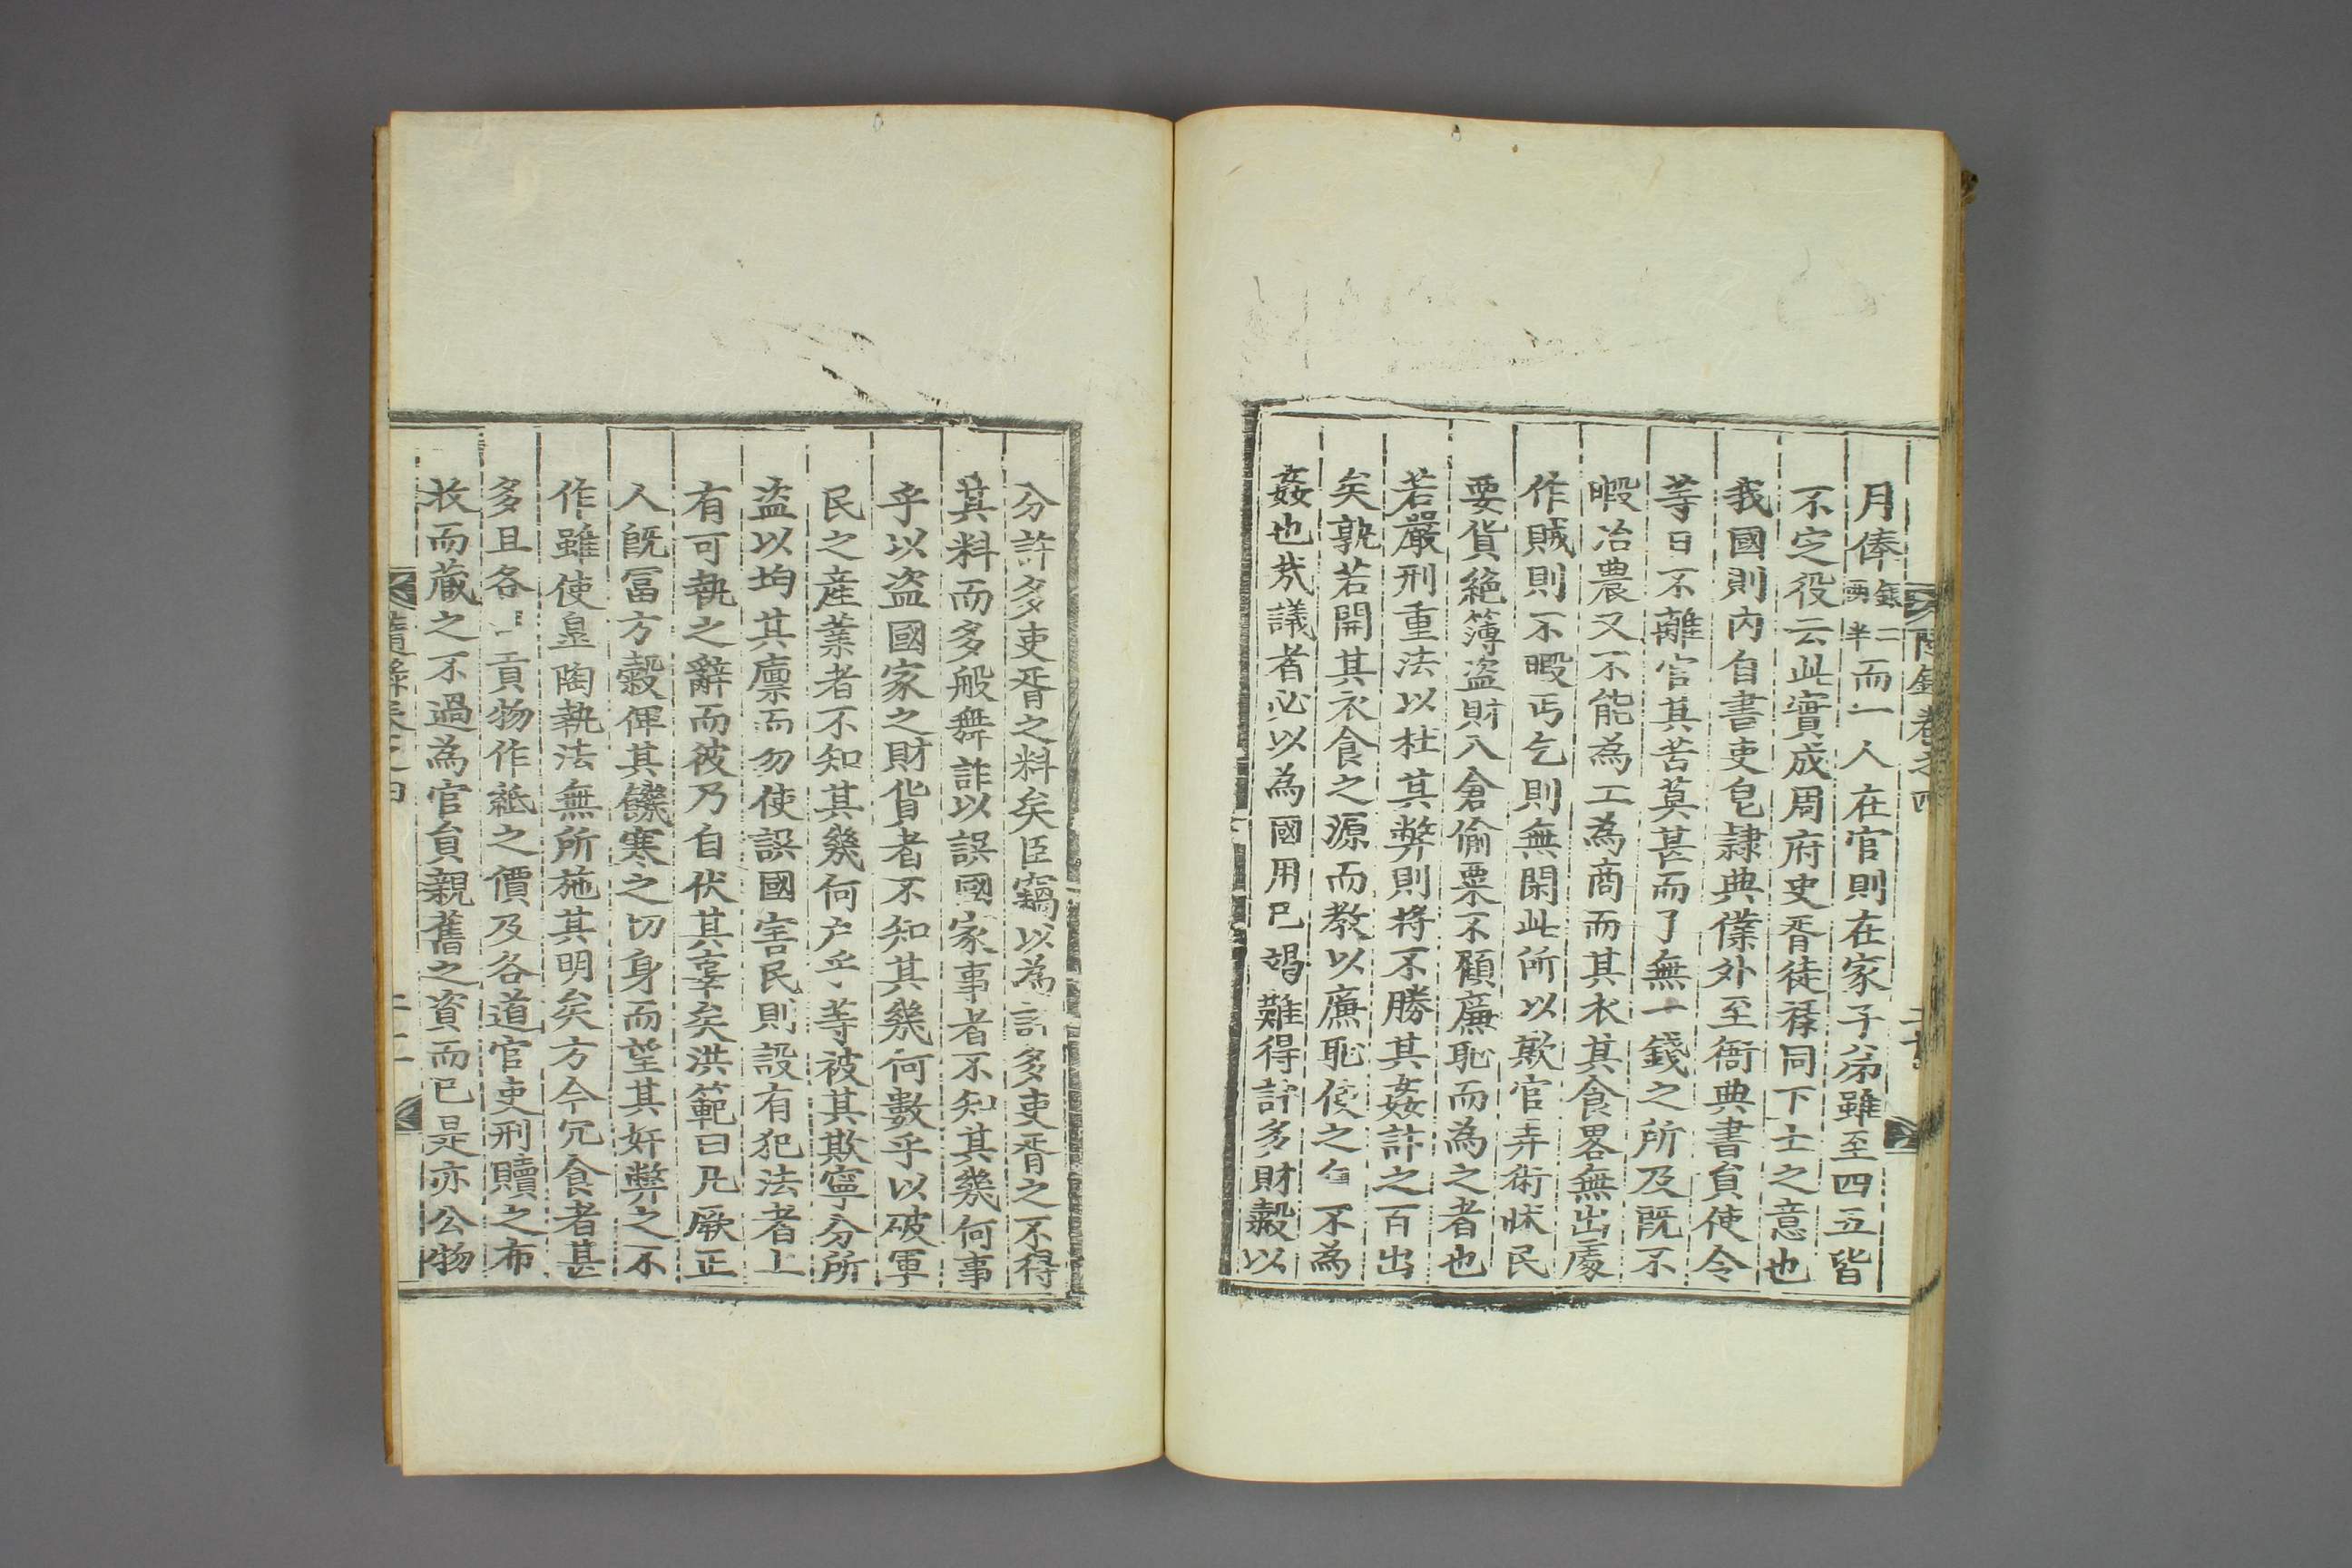 月俸銀二兩半而一人在官則在家子弟雖至四五皆
不定役云此實成周府史胥徒祿同下士之意也
我國則內自書吏皂隷典僕外至衙典書員使令
等日不離官其苦莫甚而了無一錢之所及既不
暇治農又不能為工為商而其衣其食畧無出處
作賊則不暇丐乞則無閑此所以欺官弄術牀民
要貨絶簿盗財入倉偷粟不顧廉恥而為之者也
若嚴刑重法以杜其弊則将不勝其姦詐之百出
矣孰若開其衣食之源而教以廉恥使之自不為
姦也㢤議者必以為國用已竭難得許多財穀以
分許多吏胥之料矣臣竊以為許多吏胥之不得
其料而多般舞詐以誤國家事者不知其幾何事
乎以盗國家之財貨者不知其幾何數乎以破軍
民之産業者不知其幾何户乎等被其欺寧分所
盗以均其廪而勿使誤國害民則設有犯法者上
有可執之辭而彼乃自伏其辜矣洪範曰凡厥正
人既冨方穀俾其饑寒之切身而望其奸弊之不
作雖使臯陶執法無所施其明矣方今冗食者甚
多且各貢物作紙之價及各道官吏刑贖之布
收而藏之不過為官負親舊之資而已是亦公物
隨錄卷之四